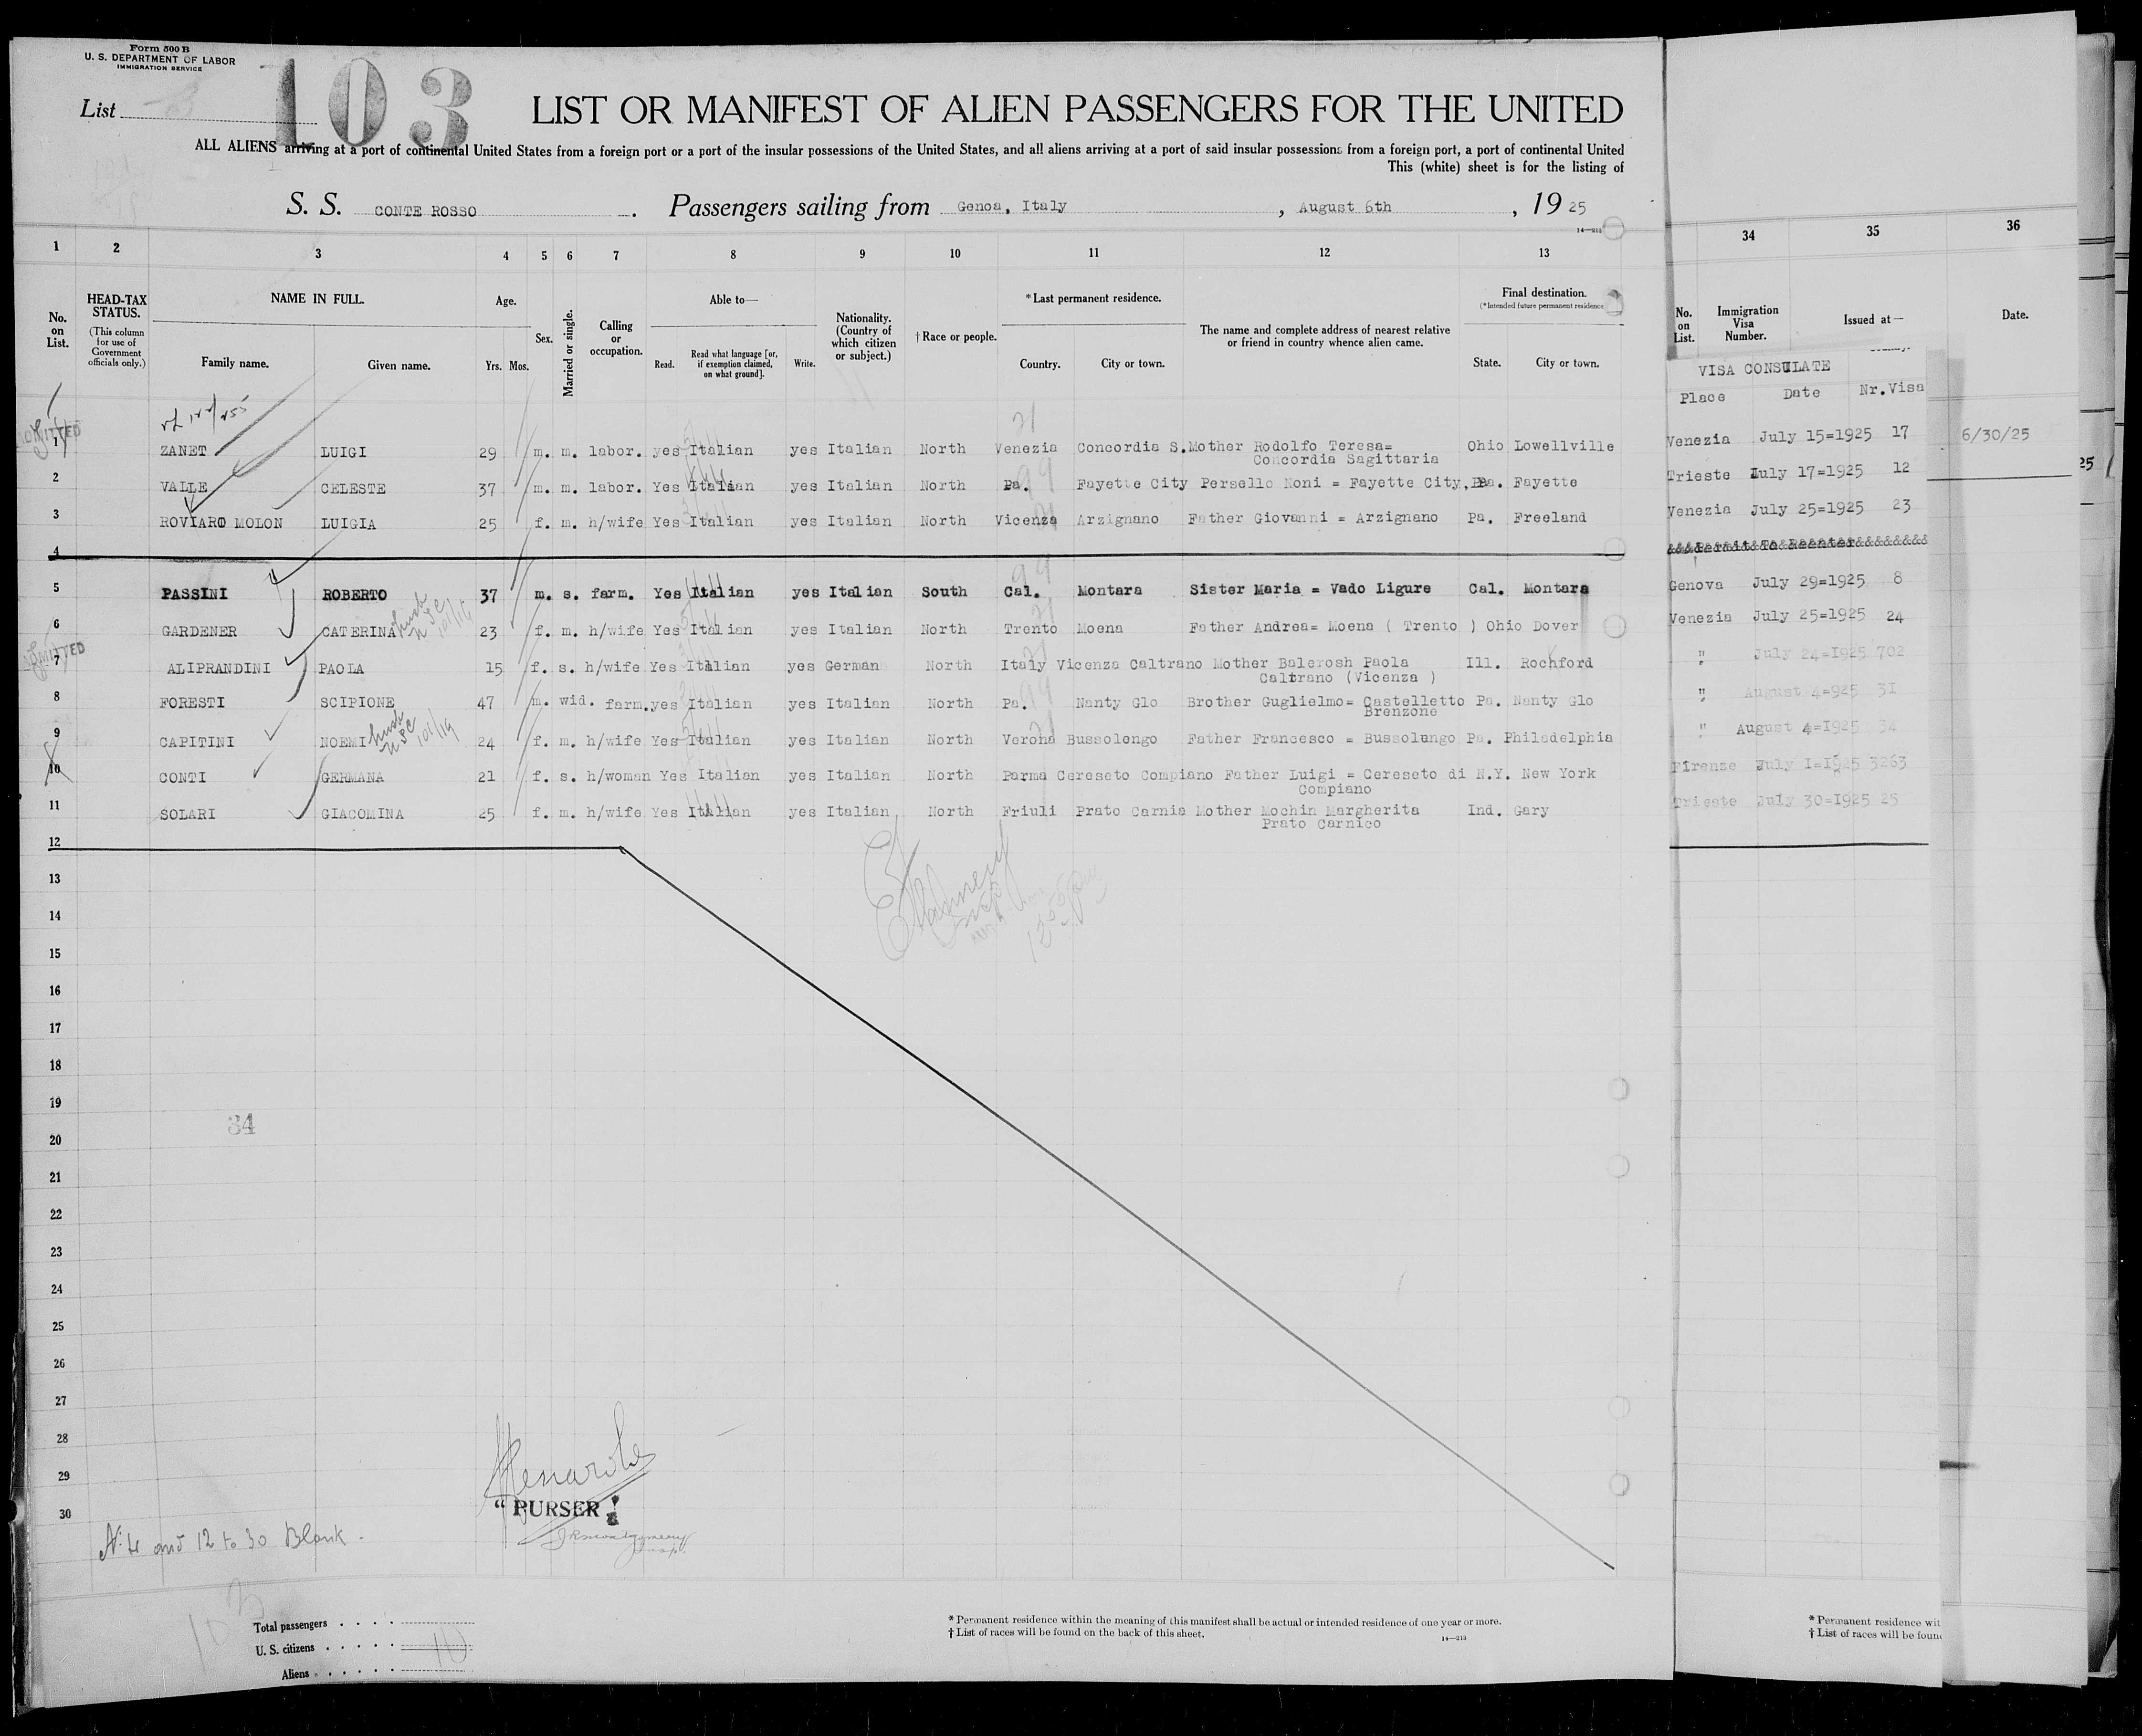 Form 500 B
U. S. DEPARTMENT OF LABOR
IMMIGRATION SERVICE
List
103
LIST OR MANIFEST OF ALIEN PASSENGERS FOR THE UNITED
ALL ALIENS arriving at a port of continental United States from a foreign port or a port of the insular possessions of the United States, and all aliens arriving at a port of said insular possessions from a foreign port, a port of continental United
This (white) sheet is for the listing of
S. S. CONTE ROSSO. Passengers sailing from Genoa, Italy, August 6th, 1925
14—213
1 2 3 4 5 6 7 8 9 10 11 12 13 34 35 36
No. on List.
HEAD-TAX STATUS.
(This column for use of Government officials only.)
NAME IN FULL.
Family name. Given name.
Age.
Yrs. Mos.
Sex.
Married or single.
Calling or occupation.
Able to—
Read. Read what language [or, if exemption claimed, on what ground]. Write.
Nationality. (Country of which citizen or subject.)
†Race or people.
*Last permanent residence.
Country. City or town.
The name and complete address of nearest relative or friend in country whence alien came.
Final destination.
(*Intended future permanent residence.
State. City or town.
No. on List.
Immigration Visa Number.
Issued at—
Date.
VISA CONSULATE
Place Date Nr.Visa
ADMITTED
1 ZANET LUIGI 29 m. m. labor. yes Italian yes Italian North Venezia Concordia S. Mother Rodolfo Teresa= Ohio Lowellville Venezia July 15=1925 17 6/30/25
Concordia Sagittaria
2 VALLE CELESTE 37 m. m. labor. Yes Italian yes Italian North Pa. Fayette City Persello Noni = Fayette City, Pa. Fayette Trieste July 17=1925 12
25
3 ROVIARO MOLON LUIGIA 25 f. m. h/wife Yes Italian yes Italian North Vicenza Arzignano Father Giovanni = Arzignano Pa. Freeland Venezia July 25=1925 23
4 Permit To Reenter
5 PASSINI ROBERTO 37 m. s. farm. Yes Italian yes Italian South Cal. Montara Sister Maria = Vado Ligure Cal. Montara Genova July 29=1925 8
6 GARDENER CATERINA 23 f. m. h/wife Yes Italian yes Italian North Trento Moena Father Andrea= Moena ( Trento ) Ohio Dover Venezia July 25=1925 24
ADMITTED
7 ALIPRANDINI PAOLA 15 f. s. h/wife Yes Italian yes German North Italy Vicenza Caltrano Mother Balerosh Paola Ill. Rockford " July 24=1925 702
Caltrano (Vicenza )
8 FORESTI SCIPIONE 47 m. wid. farm. yes Italian yes Italian North Pa. Nanty Glo Brother Guglielmo= Castelletto Pa. Nanty Glo " August 4=925 31
Brenzone
9 CAPITINI NOEMI 24 f. m. h/wife Yes Italian yes Italian North Verona Bussolengo Father Francesco = Bussolungo Pa. Philadelphia " August 4=1925 34
10 CONTI GERMANA 21 f. s. h/woman Yes Italian yes Italian North Parma Cereseto Compiano Father Luigi = Cereseto di N.Y. New York Firenze July I=1925 3263
Compiano
11 SOLARI GIACOMINA 25 f. m. h/wife Yes Italian yes Italian North Friuli Prato Carnia Mother Mochin Margherita Ind. Gary Trieste July 30=1925 25
Prato Carnico
12
13
14
15
16
17
18
19
34
20
21
22
23
24
25
26
27
28
29
30
" PURSER
N. 4 and 12 to 30 Blank.
103
Total passengers
U. S. citizens
Aliens
10
* Permanent residence within the meaning of this manifest shall be actual or intended residence of one year or more.
† List of races will be found on the back of this sheet.
14—213
* Permanent residence wit
† List of races will be foun